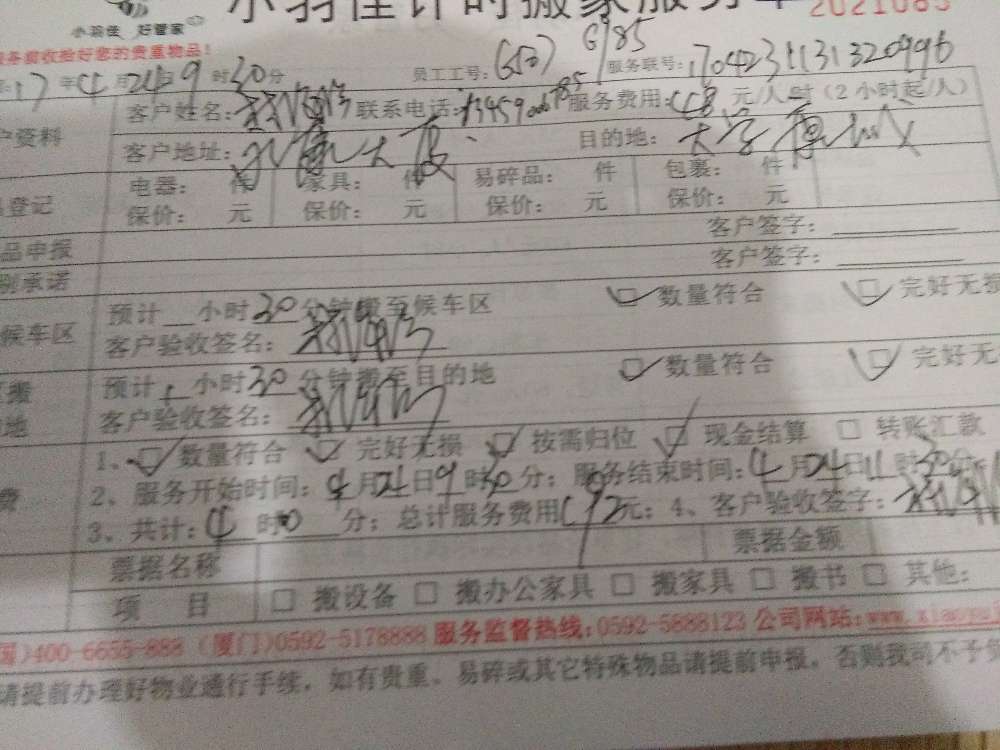 小羽佳计时搬家服务单 2021085
小羽佳 好管家
服务前收拾好您的贵重物品!
17年4月24日9时30分 员工工号: G507 G185 服务联号: 170423113132099b
户资料 客户姓名: 联系电话: 服务费用:48元/人/时(2小时起/人)
客户地址: 大厦 目的地: 大学
登记 电器: 件 家具: 件 易碎品: 件 包裹: 件
保价: 元 保价: 元 保价: 元 保价: 元
品申报 客户签字:
别承诺 客户签字:
候车区 预计__小时30分钟搬至候车区 数量符合 完好无损
客户验收签名:
搬 预计1小时30分钟搬至目的地 数量符合 完好无
地 客户验收签名:
1、数量符合 完好无损 按需归位 现金结算 转账汇款
费 2、服务开始时间:4月24日9时30分; 服务结束时间:4月24日11时30分
3、共计:4时0分; 总计服务费用192元; 4、客户验收签字:
票据名称 票据金额
项 目 搬设备 搬办公家具 搬家具 搬书 其他:
国)400-6655-888 (厦门)0592-5178888 服务监督热线:0592-5888123 公司网站:www.xiaoyu
请提前办理好物业通行手续,如有贵重、易碎或其它特殊物品请提前申报,否则我司不予